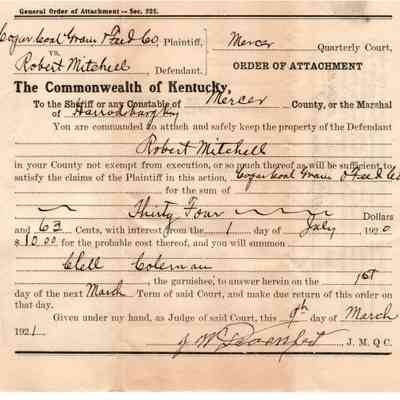 General Order of Attachment — Sec. 225.
Cogar Coal Grain & Feed Co, Plaintiff, Mercer Quarterly Court,
vs.
Robert Mitchell Defendant. ORDER OF ATTACHMENT
The Commonwealth of Kentucky,
To the Sheriff or any Constable of Mercer County, or the Marshal
of Harrodsburg Ky
You are commanded to attach and safely keep the property of the Defendant
Robert Mitchell
in your County not exempt from execution, or so much thereof as will be sufficient to
satisfy the claims of the Plaintiff in this action, Cogar Coal Grain & Feed Co
for the sum of
Thirty Four Dollars
and 63 Cents, with interest from the 1 day of July 1920
$10.00 for the probable cost thereof, and you will summon
Clell Coleman
, the garnishee, to answer herein on the 1st
day of the next March Term of said Court, and make due return of this order on
that day.
Given under my hand, as Judge of said Court, this 9th day of March
1921.
J. M. Q. C.